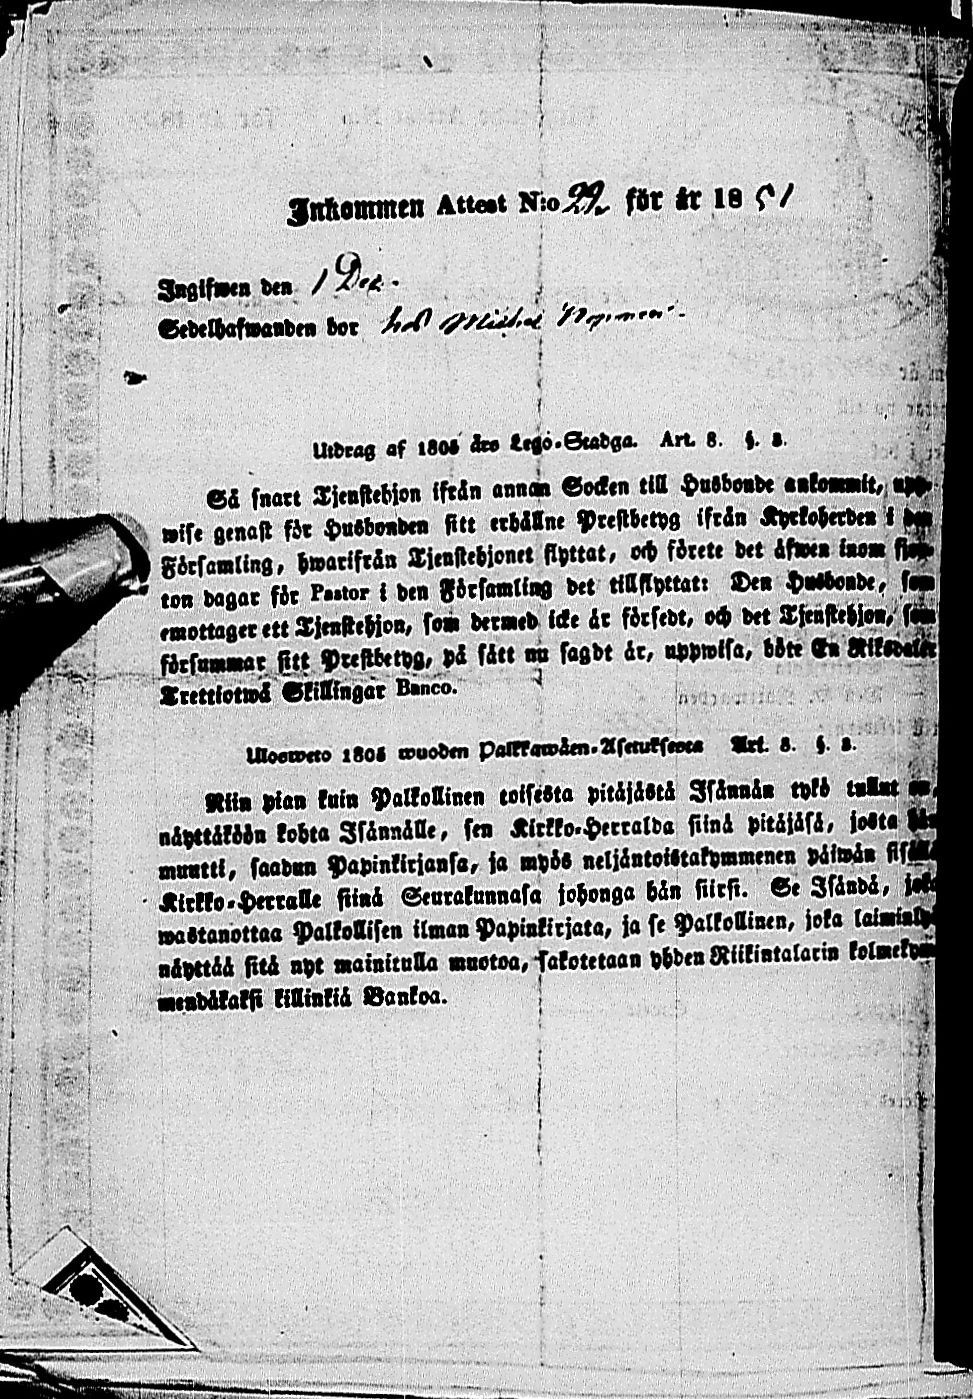 Inkommen Attest N:o 22 för år 1851
Ingifwen den 1 Dec.
Sedelhafwanden bor hos Michel
Utdrag af 1805 års Lego-Stadga. Art. 8. §. 3.
Så snart Tjenstehjon ifrån annan Socken till Husbonde ankommit, upp-
wise genast för Husbonden sitt erhållne Prestbetyg ifrån Kyrkoherden i den
Församling, hwarifrån Tjenstehjonet flyttat, och förete det äfwen inom fjor-
ton dagar för Pastor i den Församling det tillflyttat: Den Husbonde, som
emottager ett Tjenstehjon, som dermed icke är försedt, och det Tjenstehjon, som
försummar sitt Prestbetyg, på sätt nu sagdt är, uppwisa, böte En Riksdaler
Trettiotwå Skillingar Banco.
Ulosweto 1805 wuoden Palkkawäen-Asetuksesta Art. 8. §. 3.
Niin pian kuin Palkollinen toisesta pitäjästä Isännän tykö tullut on,
näyttäköön kohta Isännälle, sen Kirkko-Herralda siinä pitäjäsä, josta hän
muutti, saadun Papinkirjansa, ja myös neljäntoistakymmenen päiwän sisällä
Kirkko-Herralle siinä Seurakunnasa johonga hän siirsi. Se Isändä, joka
wastanottaa Palkollisen ilman Papinkirjata, ja se Palkollinen, joka laiminlyö
näyttää sitä nyt mainitulla muotoa, sakotetaan yhden Riikintalarin kolmekym-
mendäkaksi killinkiä Bankoa.